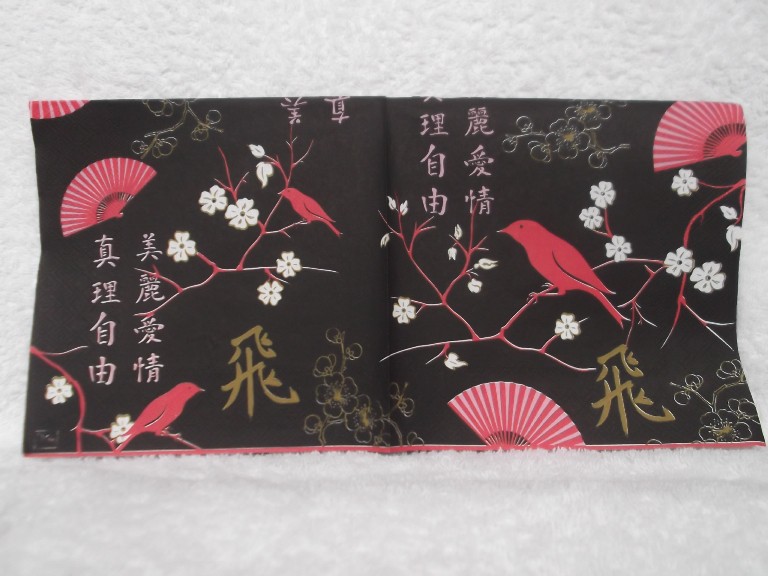 美麗愛情
真理自由
飛
麗愛情
理自由
飛